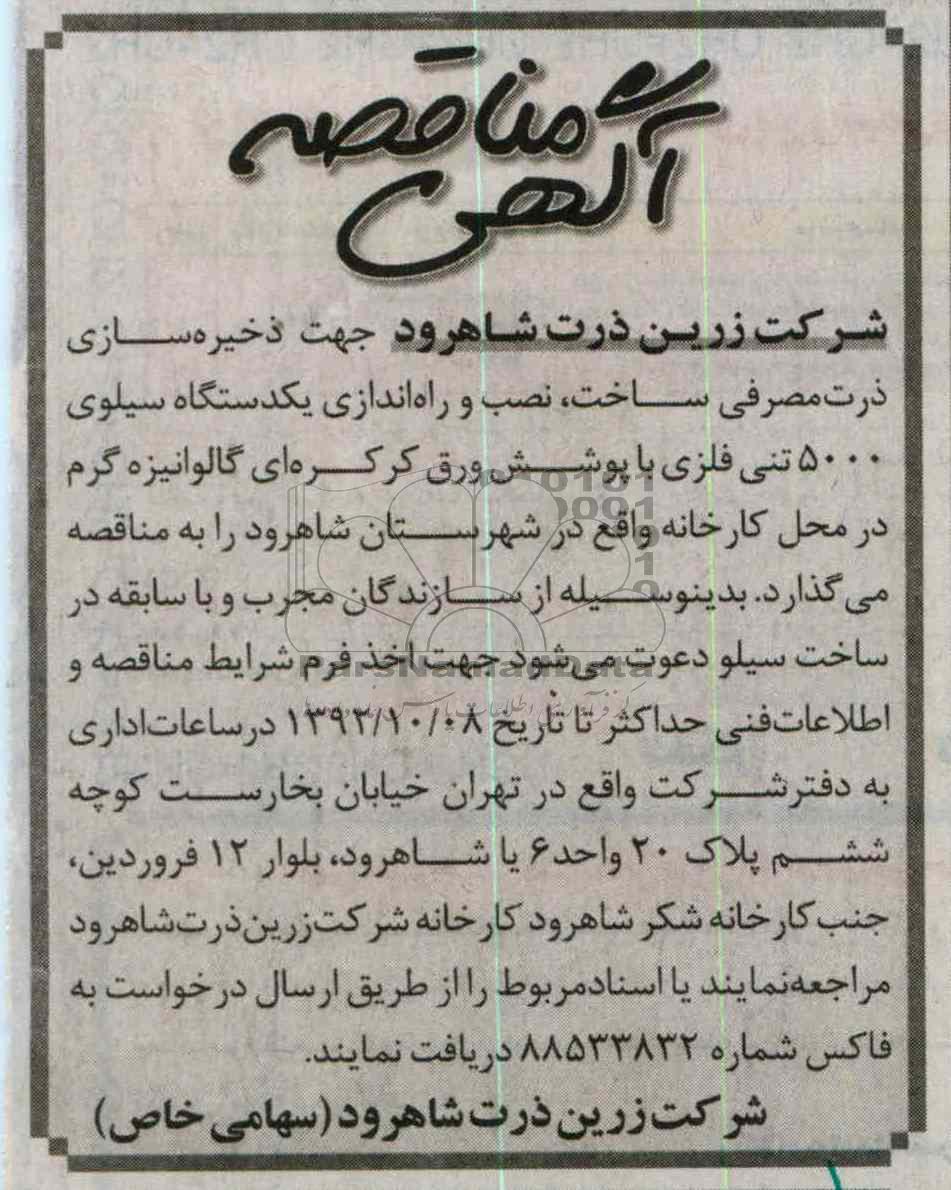 آگهی مناقصه
شرکت زرین ذرت شاهرود جهت ذخیره‌سازی
ذرت‌مصرفی ساخت، نصب و راه‌اندازی یکدستگاه سیلوی
۵۰۰۰ تنی فلزی با پوشش ورق کرکره‌ای گالوانیزه گرم
در محل کارخانه واقع در شهرستان شاهرود را به مناقصه
می‌گذارد. بدینوسیله از سازندگان مجرب و با سابقه در
ساخت سیلو دعوت می‌شود جهت اخذ فرم شرایط مناقصه و
اطلاعات‌فنی حداکثر تا تاریخ ۱۳۹۳/۱۰/۰۸ درساعات‌اداری
به دفترشرکت واقع در تهران خیابان بخارست کوچه
ششم پلاک ۲۰ واحد۶ یا شاهرود، بلوار ۱۲ فروردین،
جنب کارخانه شکر شاهرود کارخانه شرکت‌زرین‌ذرت‌شاهرود
مراجعه‌نمایند یا اسنادمربوط را از طریق ارسال درخواست به
فاکس شماره ۸۸۵۳۳۸۳۲ دریافت نمایند.
شرکت زرین ذرت شاهرود (سهامی خاص)
ParsNamadData